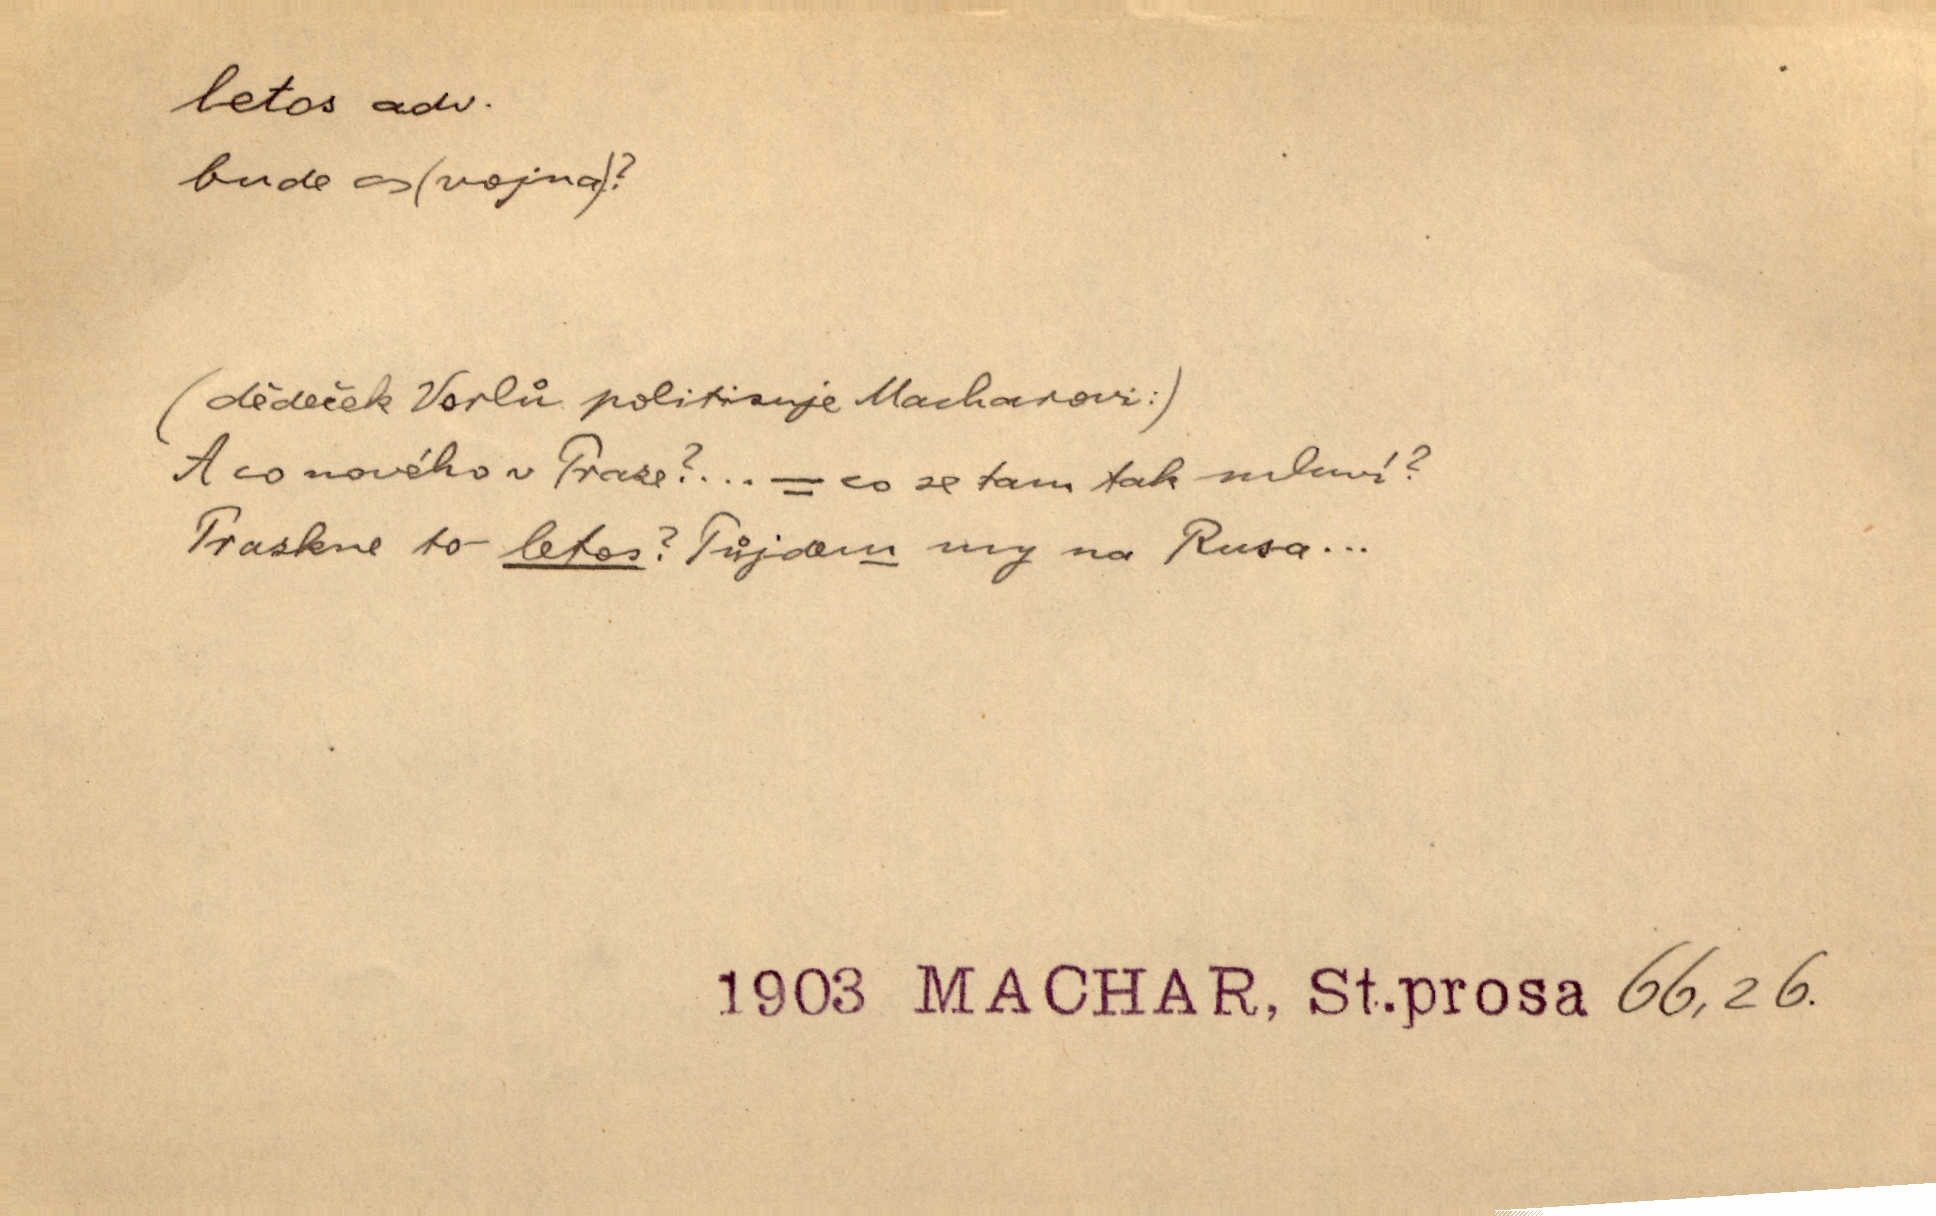 letos adv.
bude ∾ (vojna)?
(dědeček Vorlů politisuje Macharovi:)
A co nového v Praze?... = co se tam tak mluví?
Praskne to letos? Půjdem my na Rusa...
1903 MACHAR, St.prosa 66,26.